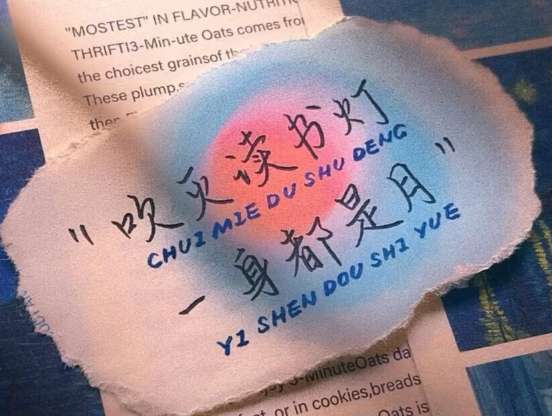 "MOSTEST" IN FLAVOR-NUTRITIO
THRIFTI3-Min-ute Oats comes from
the choicest grainsof the
These plump,s
then
"吹灭读书灯
CHUI MIE DU SHU DENG
一身都是月"
YI SHEN DOU SHI YUE
3-MinuteOats da
or in cookies,breads
Oats is